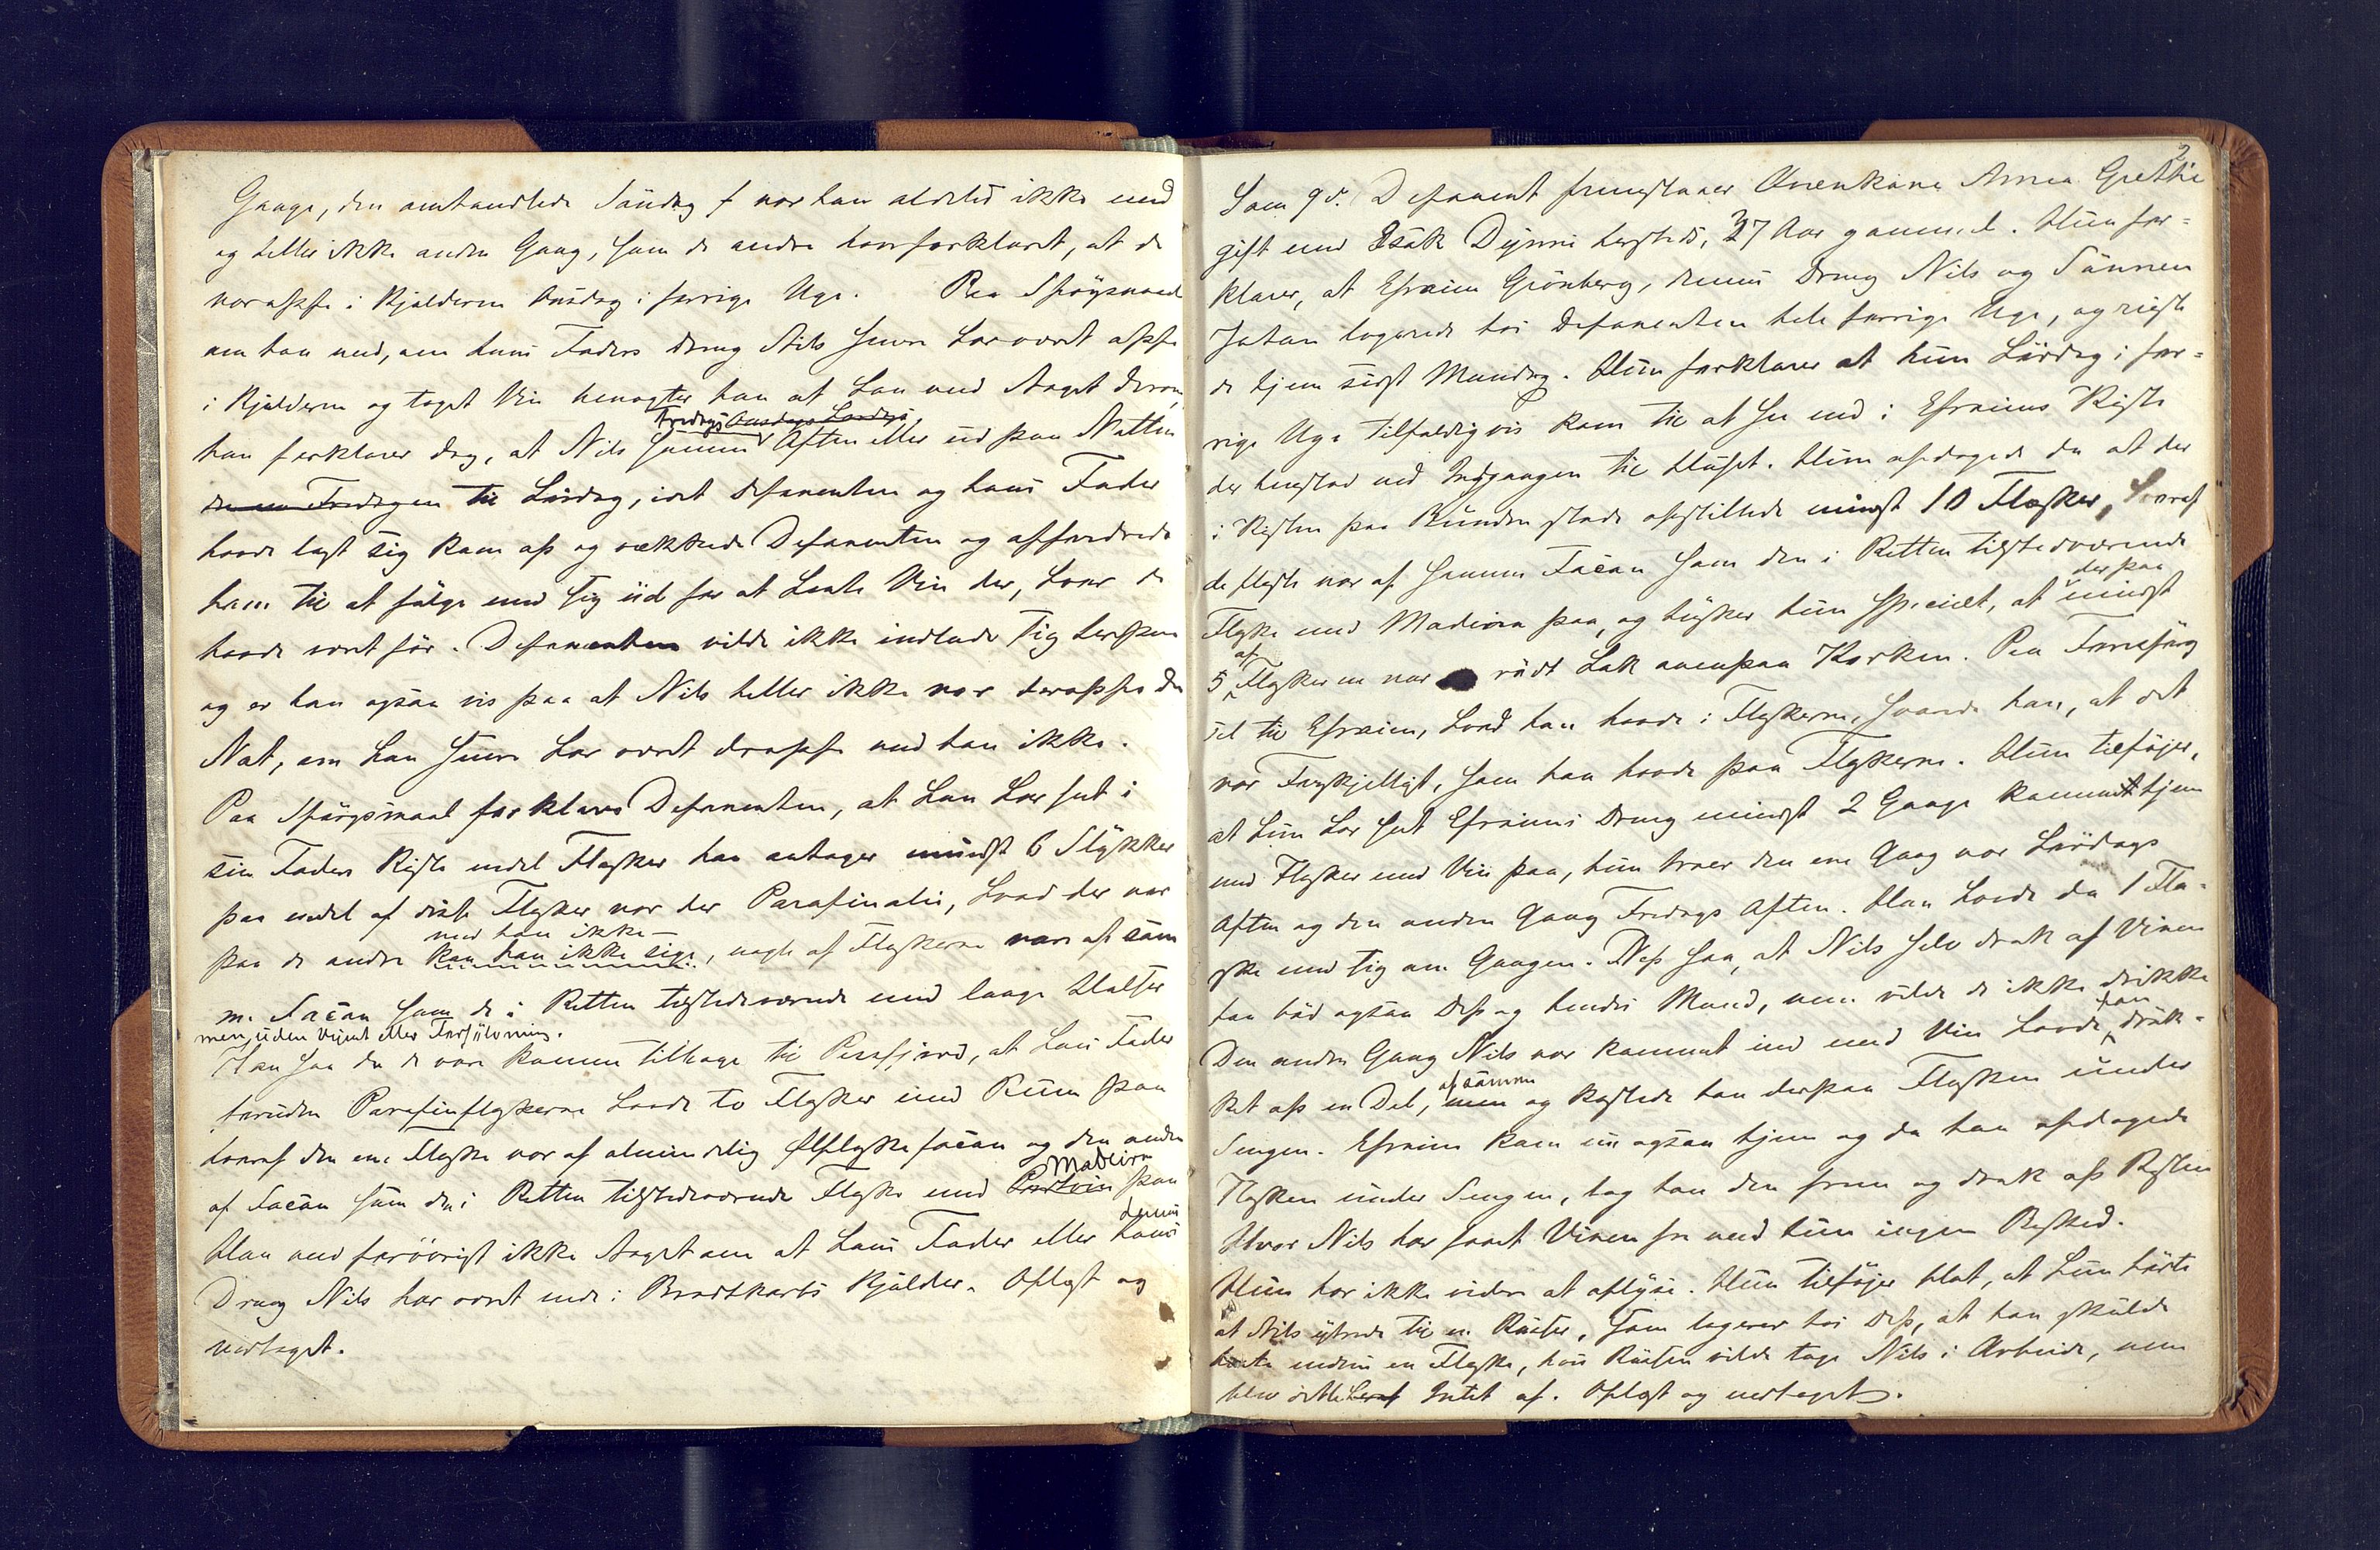 Gange, den omhandlede Søndag f var han aldeles ikke med
og heller ikke anden Gang, som de andre har forklaret, at de
var oppe i Kjælderen Onsdag i forrige Uge. Paa Spørgsmaal
om han ved, om hans Faders Dreng Nils Juven har været oppe
i Kjælderen og taget Vin benægter han at han ved Noget derom,
Fredags Onsdags Lørdags
han forklarer dog, at Nils samme Aften eller ud paa Natten
den Fredagen til Lørdag, idet Deponenten og hans Fader
havde lagt sig kom op og vækkede Deponenten og opfordrede
ham til at følge med sig ud for at hente Vin der, hvor de
havde været før. Deponenten vilde ikke indlade sig herpaa
og er han ogsaa vis paa at Nils heller ikke var deroppe den
Nat, om han siden har været deroppe ved han ikke.
Paa Spørgsmaal forklarer Deponenten, at han har seet i
sin Faders Kiste endel Flasker han antager mindst 6 Stykker
paa endel af disse Flasker var der Parafinolie, hvad der var
ved han ikke –
paa de andre kan han ikke sige, nogle af Flaskerne vare af sam
m. Facon som de i Retten tilstedeværende med lange Halser
men uden Vignet eller Forsølvning.
Han saa da de vare komne tilbage til Persfjord, at hans Fader
foruden Parafinflaskerne havde to Flasker med Rum paa
hvoraf den ene Flaske var af almindelig Ølflaskefacon og den anden
Madeira
af Facon som den i Retten tilstedeværende Flaske med Portvin paa
dennes
Han ved forøvrigt ikke Noget om at hans Fader eller hans
Dreng Nils har været inde i Brodtkorbs Kjælder. Oplæst og
vedtaget.
2
Som 9d. Deponent fremstaar Kvenkone Anna Grethe
gift med Isak Dynni hersteds, 37 Aar gammel. Hun for=
klarer, at Efraim Grönberg, dennes Dreng Nils og Sønnen
Johan logerede hos Deponenten hele forrige Uge, og reiste
de hjem sidst Mandag. Hun forklarer at hun Lördag i for=
rige Uge tilfældigvis kom til at see ned i Efraims Kiste
der henstod ved Indgangen til Huset. Hun opdagede da at der
i Kisten paa Bunden stode opstillede mindst 10 Flasker, hvoraf
de fleste var af samme Facon som den i Retten tilstedeværende
der paa
Flaske med Madeira paa, og husker hun specielt, at mindst
af
5 Flaskerne var rødt Lak ovenpaa Korken. Paa Forespörg
sel til Efraim, hvad han havde i Flaskerne, svarede han, at det
var Forskjelligt, som han havde paa Flaskerne. Hun tilføjer,
at hun har seet Efraims Dreng mindst 2 Gange kommet hjem
med Flasker med Vin paa, hun troer den ene Gang var Lørdags
Aften og den anden Gang Fredags Aften. Han havde da 1 Fla=
ske med sig om Gangen. Dep saa, at Nils selv drak af Vinen
han bød ogsaa Dep og hendes Mand, men vilde de ikke drikke
han
Den anden Gang Nils var kommet ind med Vin havde druk=
af samme
ket op en Del, men og kastede han derpaa Flasken under
Sengen. Efraim kom nu ogsaa hjem og da han opdagede
Flasken under Sengen, tog han den frem og drak op Resten
Hvor Nils har faaet Vinen fra ved hun ingen Besked.
Hun har ikke videre at oplyse. Hun tilføjer blot, at hun hørte
at Nils ytrede til en Russer, som logerer hos Dep, at han skulde
hente endnu en Flaske, hvis Russen vilde tage Nils i Arbeide, men
blev dette heraf Intet af. Oplæst og vedtaget.